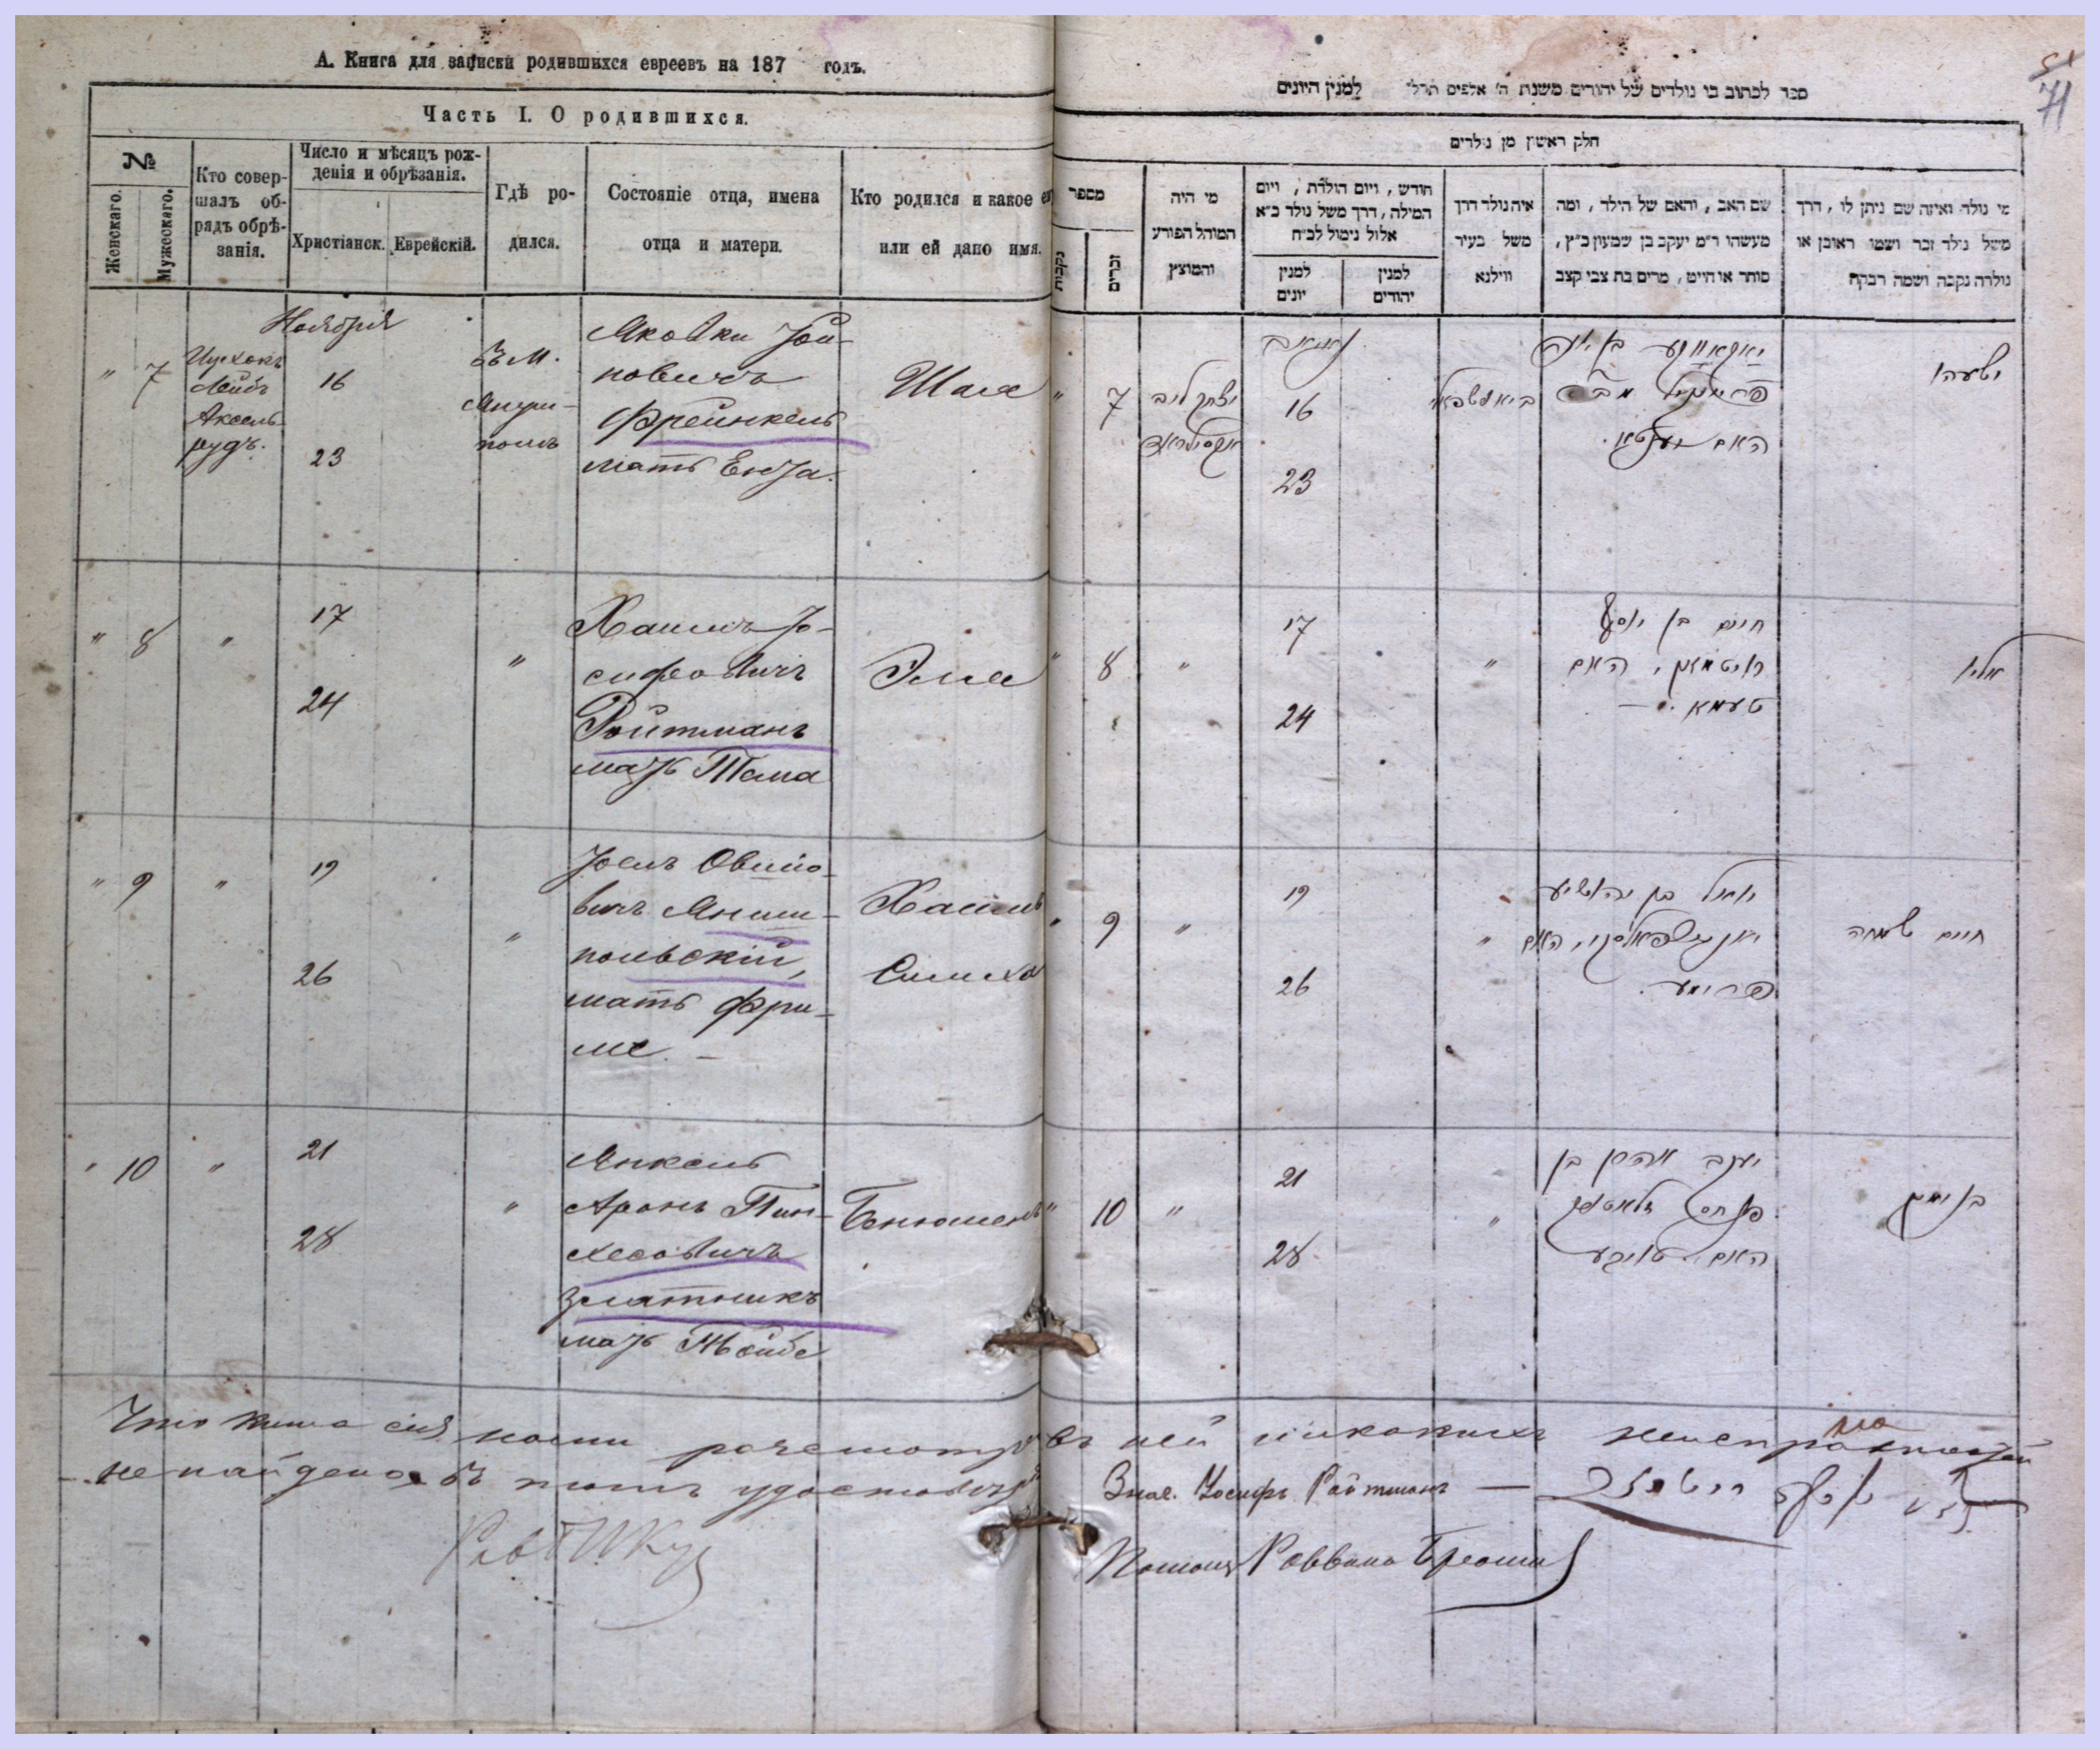 А. Книга для записки родившихся евреевъ на 187 годъ.
Часть I. О родившихся.
№
Женскаго.
Мужескаго.
Кто совер-
шалъ об-
рядъ обрѣ-
занія.
Число и мѣсяцъ рож-
денія и обрѣзанія.
Христіанск.
Еврейскій.
Гдѣ ро-
дился.
Состояніе отца, имена
отца и матери.
Кто родился и какое ему
или ей дано имя.
Ноября
" 7
Ицхокъ
Лейбъ
Аксель-
рудъ.
16
23
Въ м.
польъ
Яковки Іои-
новичъ
Френкель
мать Ента.
Шая
" 8 "
17
24
"
Хаимъ Іо-
сифовичъ
Ройтманъ
мать Тема
Элье
" 9 "
19
26
"
Іоель Овшіо-
вичъ Яниш-
польскій,
мать Фри-
ме. —
Хаимъ
Симха
" 10 "
21
28
"
Янкель
Аронъ Пин-
хесовичъ
Златникъ
мать Тойбе
Бенюменъ
ספר לכתוב בו נולדים של יהודים משנת ה' אלפים תרל" למנין היונים
51
71
חלק ראשון מן נולדים
מספר
נקבות
זכרים
מי היה
המוהל הפורע
והמוצץ
חודש, ויום הולדת, ויום
המילה, דרך משל נולד כ"א
אלול נימול לכ"ח
למנין
יונים
למנין
יהודים
איה נולד דרך
משל בעיר
ווילנא
שם האב, והאם של הילד, ומה
מעשהו ר"מ יעקב בן שמעון כ"ץ,
סוחר או חייט, מרים בת צבי קצב
מי נולד ואיזה שם ניתן לו, דרך
משל נולד זכר ושמו ראובן או
נולדה נקבה ושמה רבקה
" 7
יצחק ליב
אקסילראד
16
23
יאקאווקע בן יונה
פרענקיל
האם יענטא.
ישעהו
" 8 "
17
24
"
חיים בן יוסף
רויטמאן, האם
טעמא. —
אליו
" 9 "
19
26
"
יואל בן יהושיע
יאנישפאלסקי, האם
פרימע.
חיים שמחה
" 10 "
21
28
"
יעקב אהרן בן
פנחס זלאטניק
האם טויבע
בנימין
Что книга сія нами разсмотр въ ней никакихъ неисправностей
не найдено въ томъ удостовер
Знае. Іосифъ Ройтманъ —
Помощ Раввина